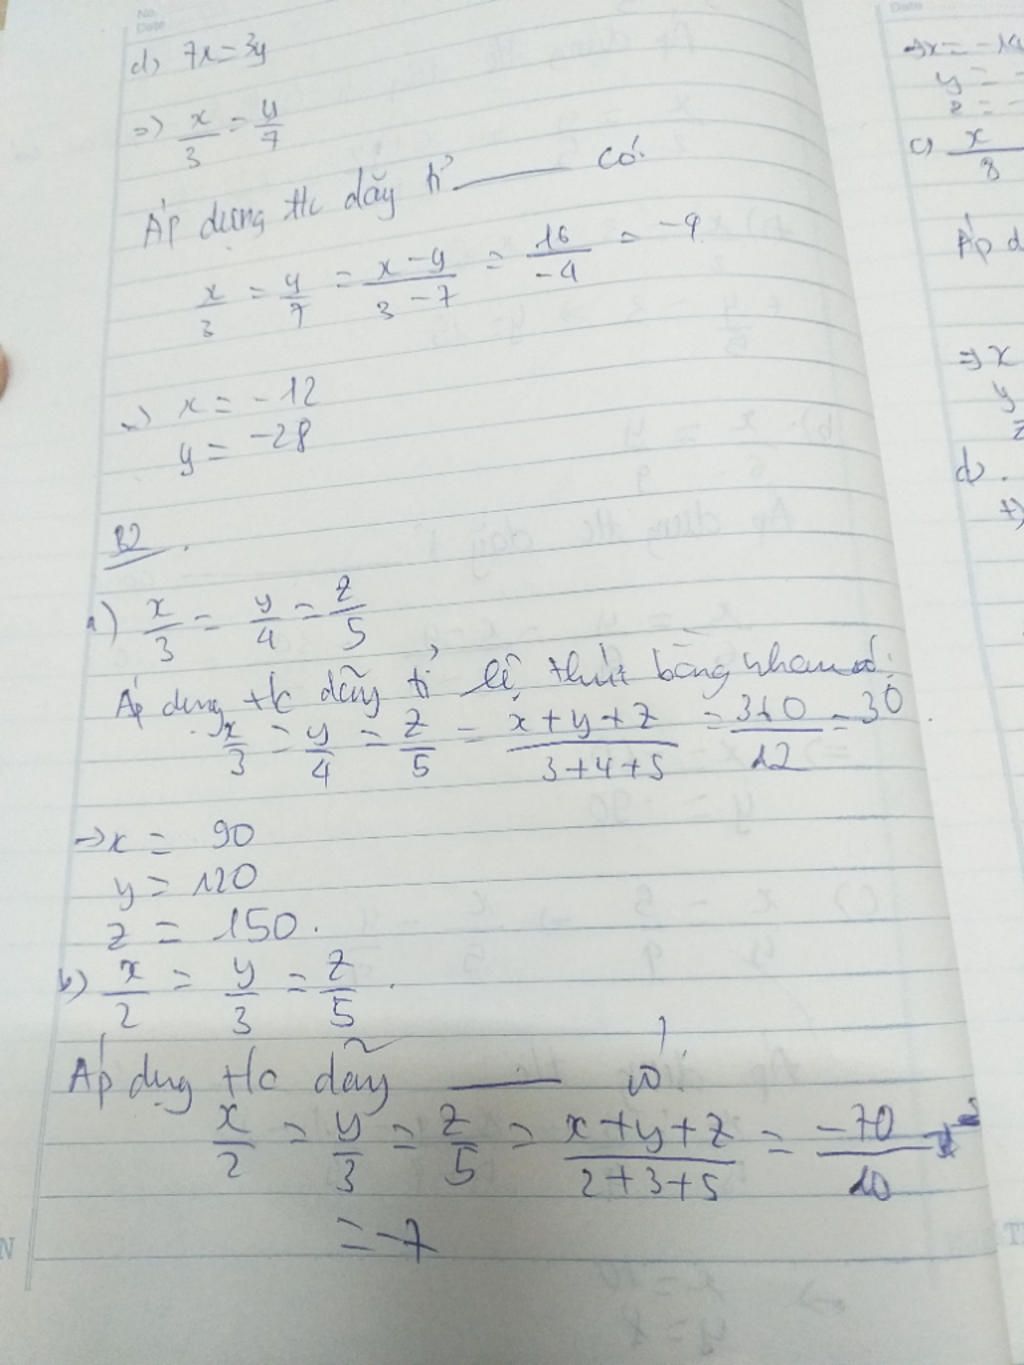 No.
Date
d) 7x = 3y
=> x/3 = y/7
Áp dụng t/c dãy tỉ ——— có:
x/3 = y/7 = x-y/3-7 = 16/-4 = -4
=> x = -12
y = -28
B2
a) x/3 = y/4 = z/5
Áp dụng t/c dãy tỉ lệ thức bằng nhau có:
x/3 = y/4 = z/5 = x+y+z/3+4+5 = 360/12 = 30
=> x = 90
y = 120
z = 150.
b) x/2 = y/3 = z/5.
Áp dụng t/c dãy ——— có:
x/2 = y/3 = z/5 = x+y+z/2+3+5 = -70/10
= -7
Date
=> x = -14
y = -
z = -
c) x/8
Áp d
=> x
y
z
d)